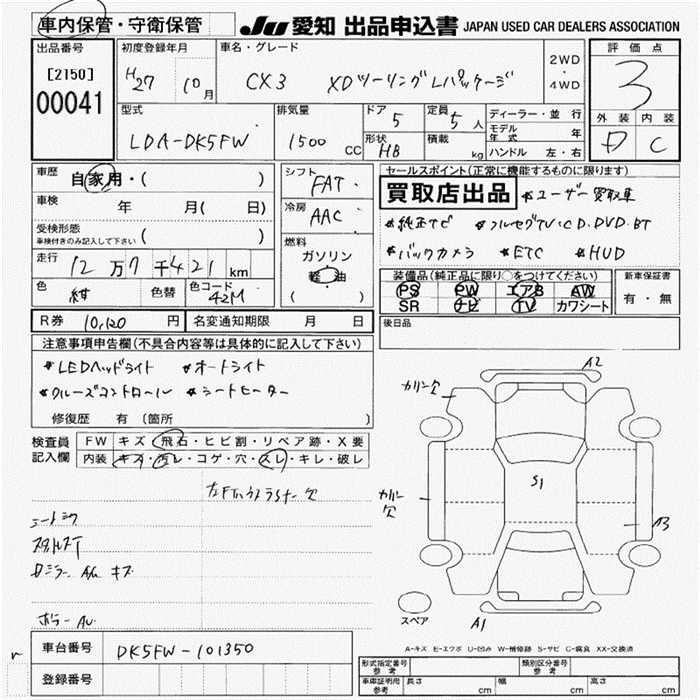 車内保管・守衛保管
JU 愛知 出品申込書 JAPAN USED CAR DEALERS ASSOCIATION
出品番号 [2150] 00041
初度登録年月 H27 10月
車名・グレード CX3 XDツーリングLパッケージ
2WD・4WD
評価点 3
外装 内装
D C
型式 LDA-DK5FW
排気量 1500 CC
ドア 5
定員 5人
形状 HB
積載 kg
ディーラー・並行
モデル年式 年
ハンドル 左・右
車歴 自家用・( )
車検 年 月( 日)
受検形態 ( )
車検付きのみ記入して下さい
走行 12万7千421km
色 紺 色替 色コード 42M
シフト FAT
冷房 AAC
燃料 ガソリン 軽油 ( )
セールスポイント(正常に機能するものに限ります)
買取店出品 *ユーザー買取車
*純正ナビ *フルセグTV・CD・DVD・BT
*バックカメラ *ETC *HUD
装備品(純正品に限り○をつけてください)
PS PW エアB AW
SR ナビ TV カワシート
新車保証書
有・無
R券 10,120円 名変通知期限 月 日
後日品
注意事項申告欄(不具合内容等は具体的に記入して下さい)
*LEDヘッドライト *オートライト
*クルーズコントロール *シートヒーター
修復歴 有(箇所 )
検査員記入欄
FW キズ・飛石・ヒビ割・リペア跡・X要
内装 キズ・汚レ・コゲ・穴・スレ・キレ・破レ
A2
カリン欠
S1
カリン欠
A3
スペア
A1
A-キズ E-エクボ U-凹み W-補修跡 S-サビ C-腐食 XX-交換済
車台番号 DK5FW-101350
登録番号
形式指定番号 参考
類別区分番号 参考
車庫証明用 参考 長さ cm 幅 cm 高さ cm